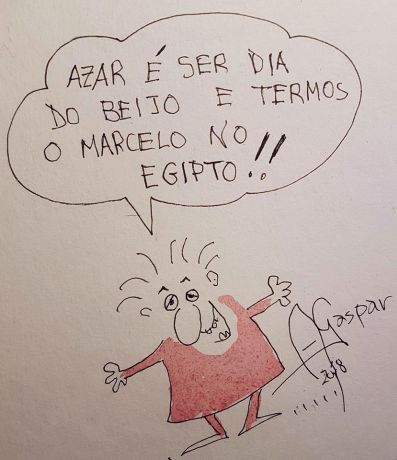 AZAR É SER DIA
DO BEIJO E TERMOS
O MARCELO NO
EGIPTO!!
Gaspar
2018